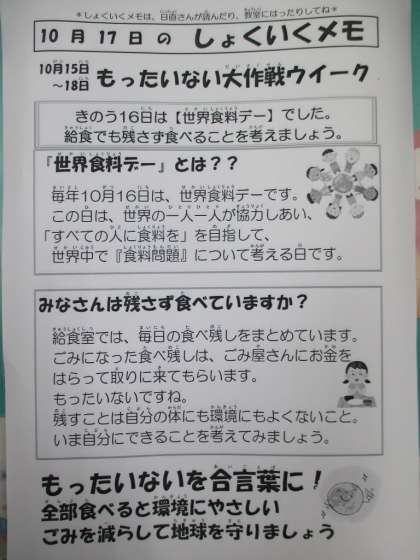 ＊しょくいくメモは、日直さんが読んだり、教室にはったりしてね＊
10月17日のしょくいくメモ
10月15日
～18日
もったいない大作戦ウイーク
きのう16日は【世界食料デー】でした。
給食でも残さず食べることを考えましょう。
『世界食料デー』とは？？
毎年10月16日は、世界食料デーです。
この日は、世界の一人一人が協力しあい、
「すべての人に食料を」を目指して、
世界中で『食料問題』について考える日です。
みなさんは残さず食べていますか？
給食室では、毎日の食べ残しをまとめています。
ごみになった食べ残しは、ごみ屋さんにお金を
はらって取りに来てもらいます。
もったいないですね。
残すことは自分の体にも環境にもよくないこと。
いま自分にできることを考えてみましょう。
もったいないを合言葉に！
全部食べると環境にやさしい
ごみを減らして地球を守りましょう